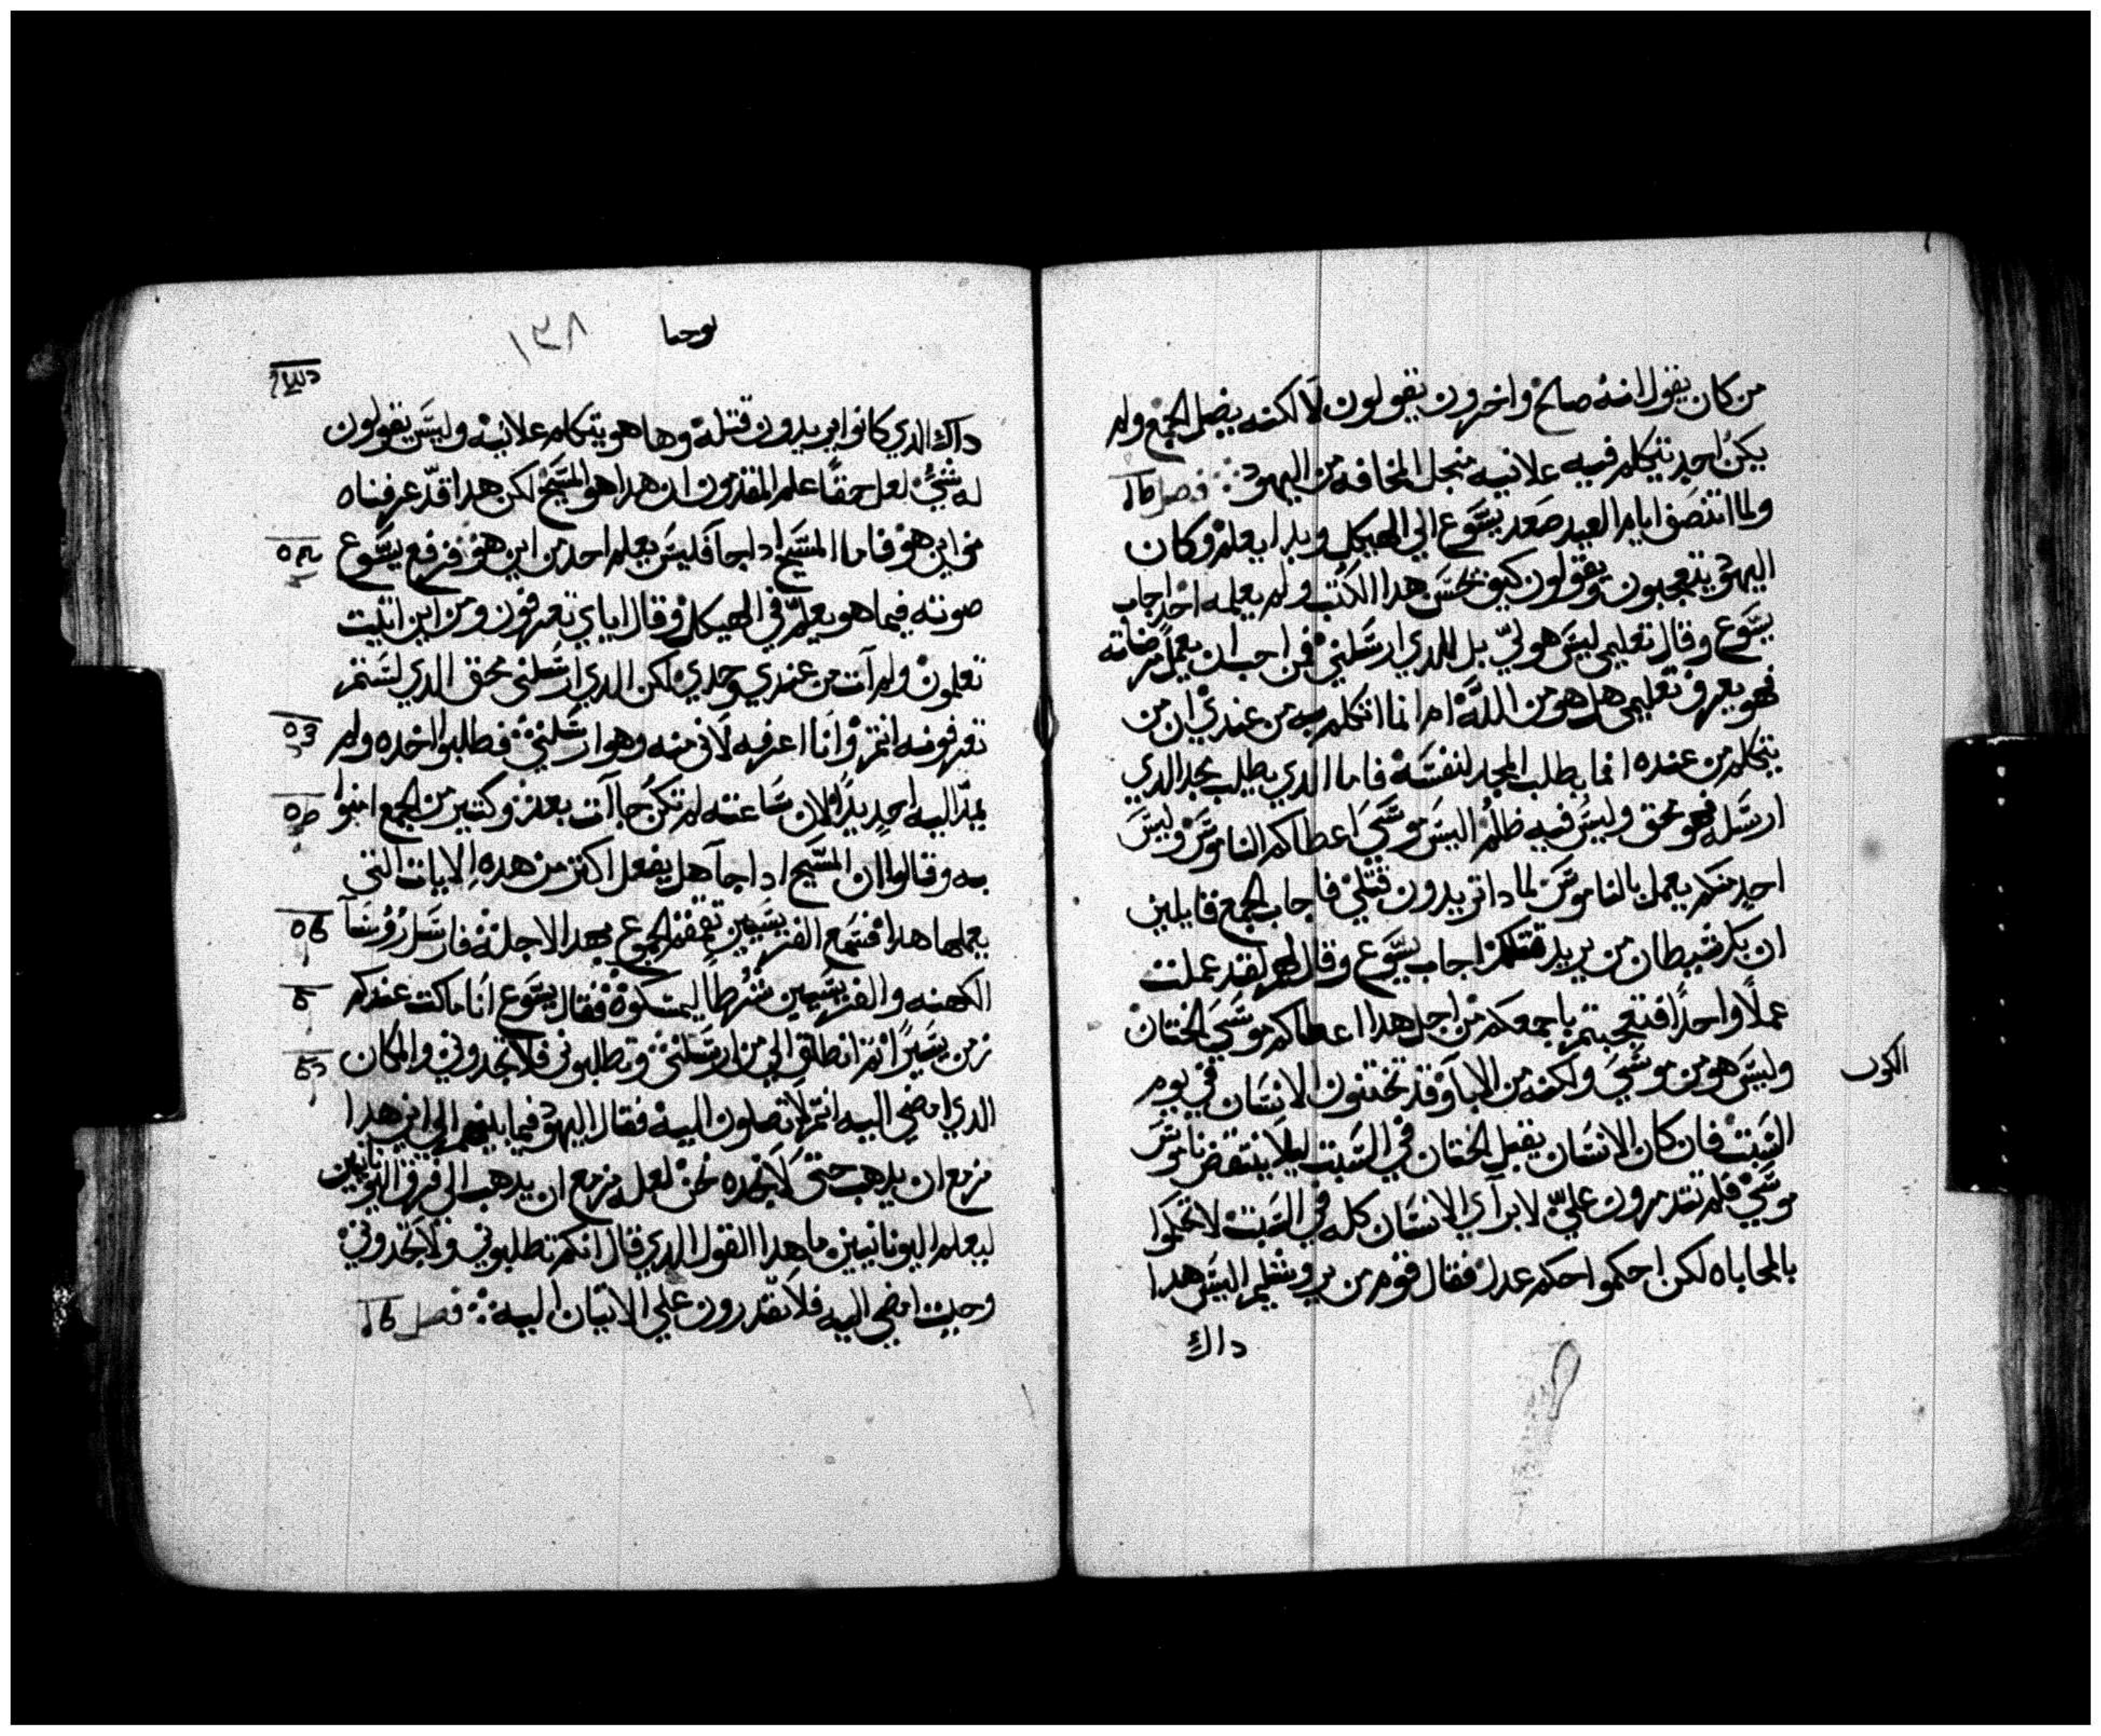 من كان يقول انه صالح واخرون يقولون لا لكنه يضل الجمع ولم
يكن احد يتكلم فيه علانيه منجل المخافه من اليهود فصل
ولما انتصف ايام العيد صعد يسوع الي الهيكل وبدا يعلم وكان
اليهود يتعجبون ويقولون كيف يحسن هدا الكتب ولم يعلمه احد اجاب
يسوع وقال تعليمي ليس هو لي بل للدي ارسلني فمن احب ان يعمل مرضاته
فهو يعرف تعليمي هل هو من الله ام انما اتكلم به من عندي ان من
يتكلم من عنده انما يطلب المجد لنفسه فاما الدي يطلب مجد الدي
ارسله فهو محق وليس فيه ظلم اليس موسي اعطاكم الناموس وليس
احد منكم يعمل بالناموس لمادا تريدون قتلي فاجاب الجمع قايلين
ان بك شيطان من يريد قتلك اجاب يسوع وقال لهم لقد عملت
عملا واحدا فتعجبتم باجمعكم من اجل هدا اعطاكم موسي الختان
وليس هو من موسي ولكنه من الابا وقد تختنون الانسان في يوم
الكون
السبت فان كان الانسان يقبل الختان في السبت ليلا ينتقض ناموس
موسي فلم تتدمرون علي لابراي الانسان كله في السبت لا تحكموا
بالمحاباه لكن احكموا احكم عدل فقال قوم من يروشليم اليس هدا
داك
يوحنا ١٣٨
داك الدي كانوا يريدون قتله وها هو يتكلم علانيه وليس يقولون
له شي لعل حقا علم المقدمون ان هدا هو المسيح لكن هدا قد عرفناه
من اين هو فاما المسيح ادا جا فليس يعلم احد من اين هو فرفع يسوع
صوته فيما هو يعلم في الهيكل وقال اياي تعرفون ومن اين اتيت
تعلمون ولم آت من عندي وحدي لكن الدي ارسلني محق الدي لستم
تعرفونه انتم وانا اعرفه لاني منه وهو ارسلني فطلبوا اخده ولم
يمد اليه احد يدا لان ساعته لم تكن جاآت بعد وكتير من الجمع امنوا
به وقالوا ان المسيح ادا جآ هل يفعل اكتر من هده الايات التي
يعملها هدا فسمع الفريسيين تقمقم الجموع بهدا لاجله فارسل روسآ
الكهنه والفريسيين شرطا ليمسكوه فقال يسوع انا ماكت عندكم
زمن يسيرا تم انطلق الي من ارسلني وتطلبوني فلا تجدوني والمكان
الدي امضي اليه انتم لا تصلون اليه فقال اليهود فيما بينهم الي اين هدا
مزمع ان يدهب حتي لا نجده نحن لعله مزمع ان يدهب الي فرق اليونانيين
ليعلم اليونانيين ما هدا القول الدي قال انكم تطلبوني ولا تجدوني
وحيت امضي اليه فلا تقدرون علي الاتيان اليه فصل